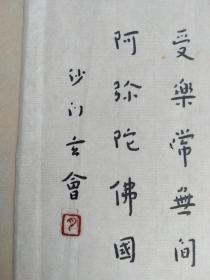 受樂常無间
阿弥陀佛國
沙门玄會